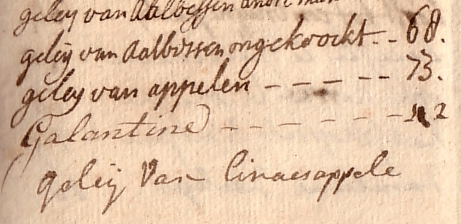 geleij van Aalbessen
geleij van Aalbessen ongekoockt - - 68.
geleij van appelen - - - - - 73.
Galantine - - - - - -
geleij Van Cinaesappele